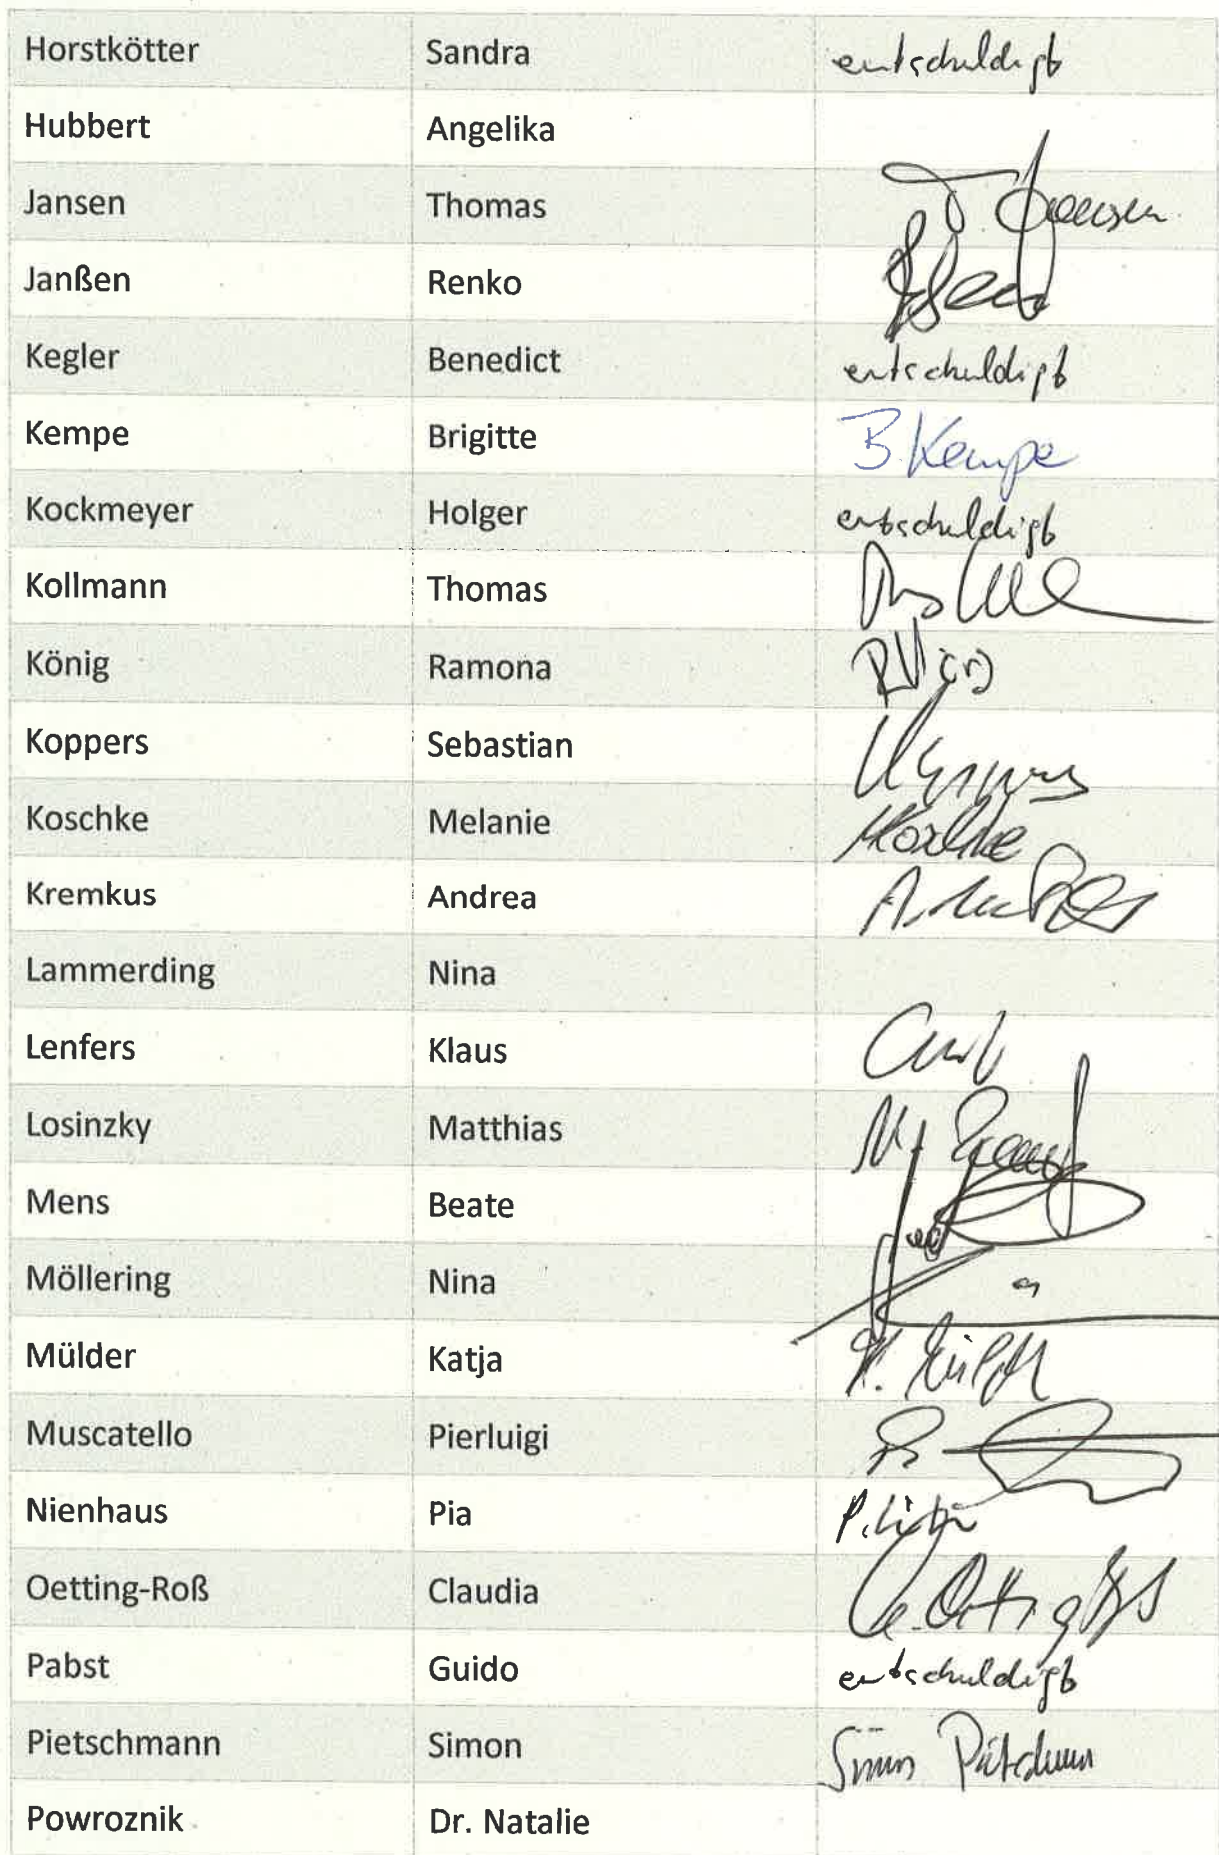 Horstkötter Sandra entschuldigt
Hubbert Angelika
Jansen Thomas T. Jansen
Janßen Renko
Kegler Benedict entschuldigt
Kempe Brigitte B. Kempe
Kockmeyer Holger entschuldigt
Kollmann Thomas
König Ramona
Koppers Sebastian
Koschke Melanie Koschke
Kremkus Andrea
Lammerding Nina
Lenfers Klaus
Losinzky Matthias
Mens Beate
Möllering Nina
Mülder Katja K. Mülder
Muscatello Pierluigi
Nienhaus Pia
Oetting-Roß Claudia C. Oetting-Roß
Pabst Guido entschuldigt
Pietschmann Simon Simon Pietschmann
Powroznik Dr. Natalie